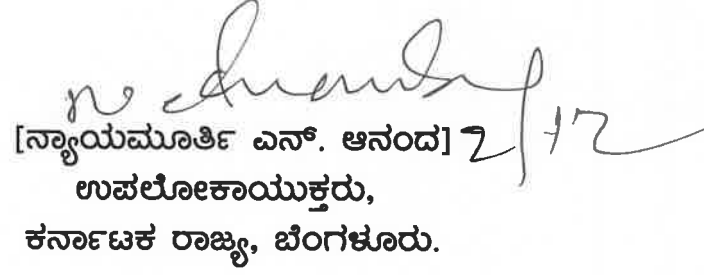 [ನ್ಯಾಯಮೂರ್ತಿ ಎನ್. ಆನಂದ] 2/12
ಉಪಲೋಕಾಯುಕ್ತರು,
ಕರ್ನಾಟಕ ರಾಜ್ಯ, ಬೆಂಗಳೂರು.